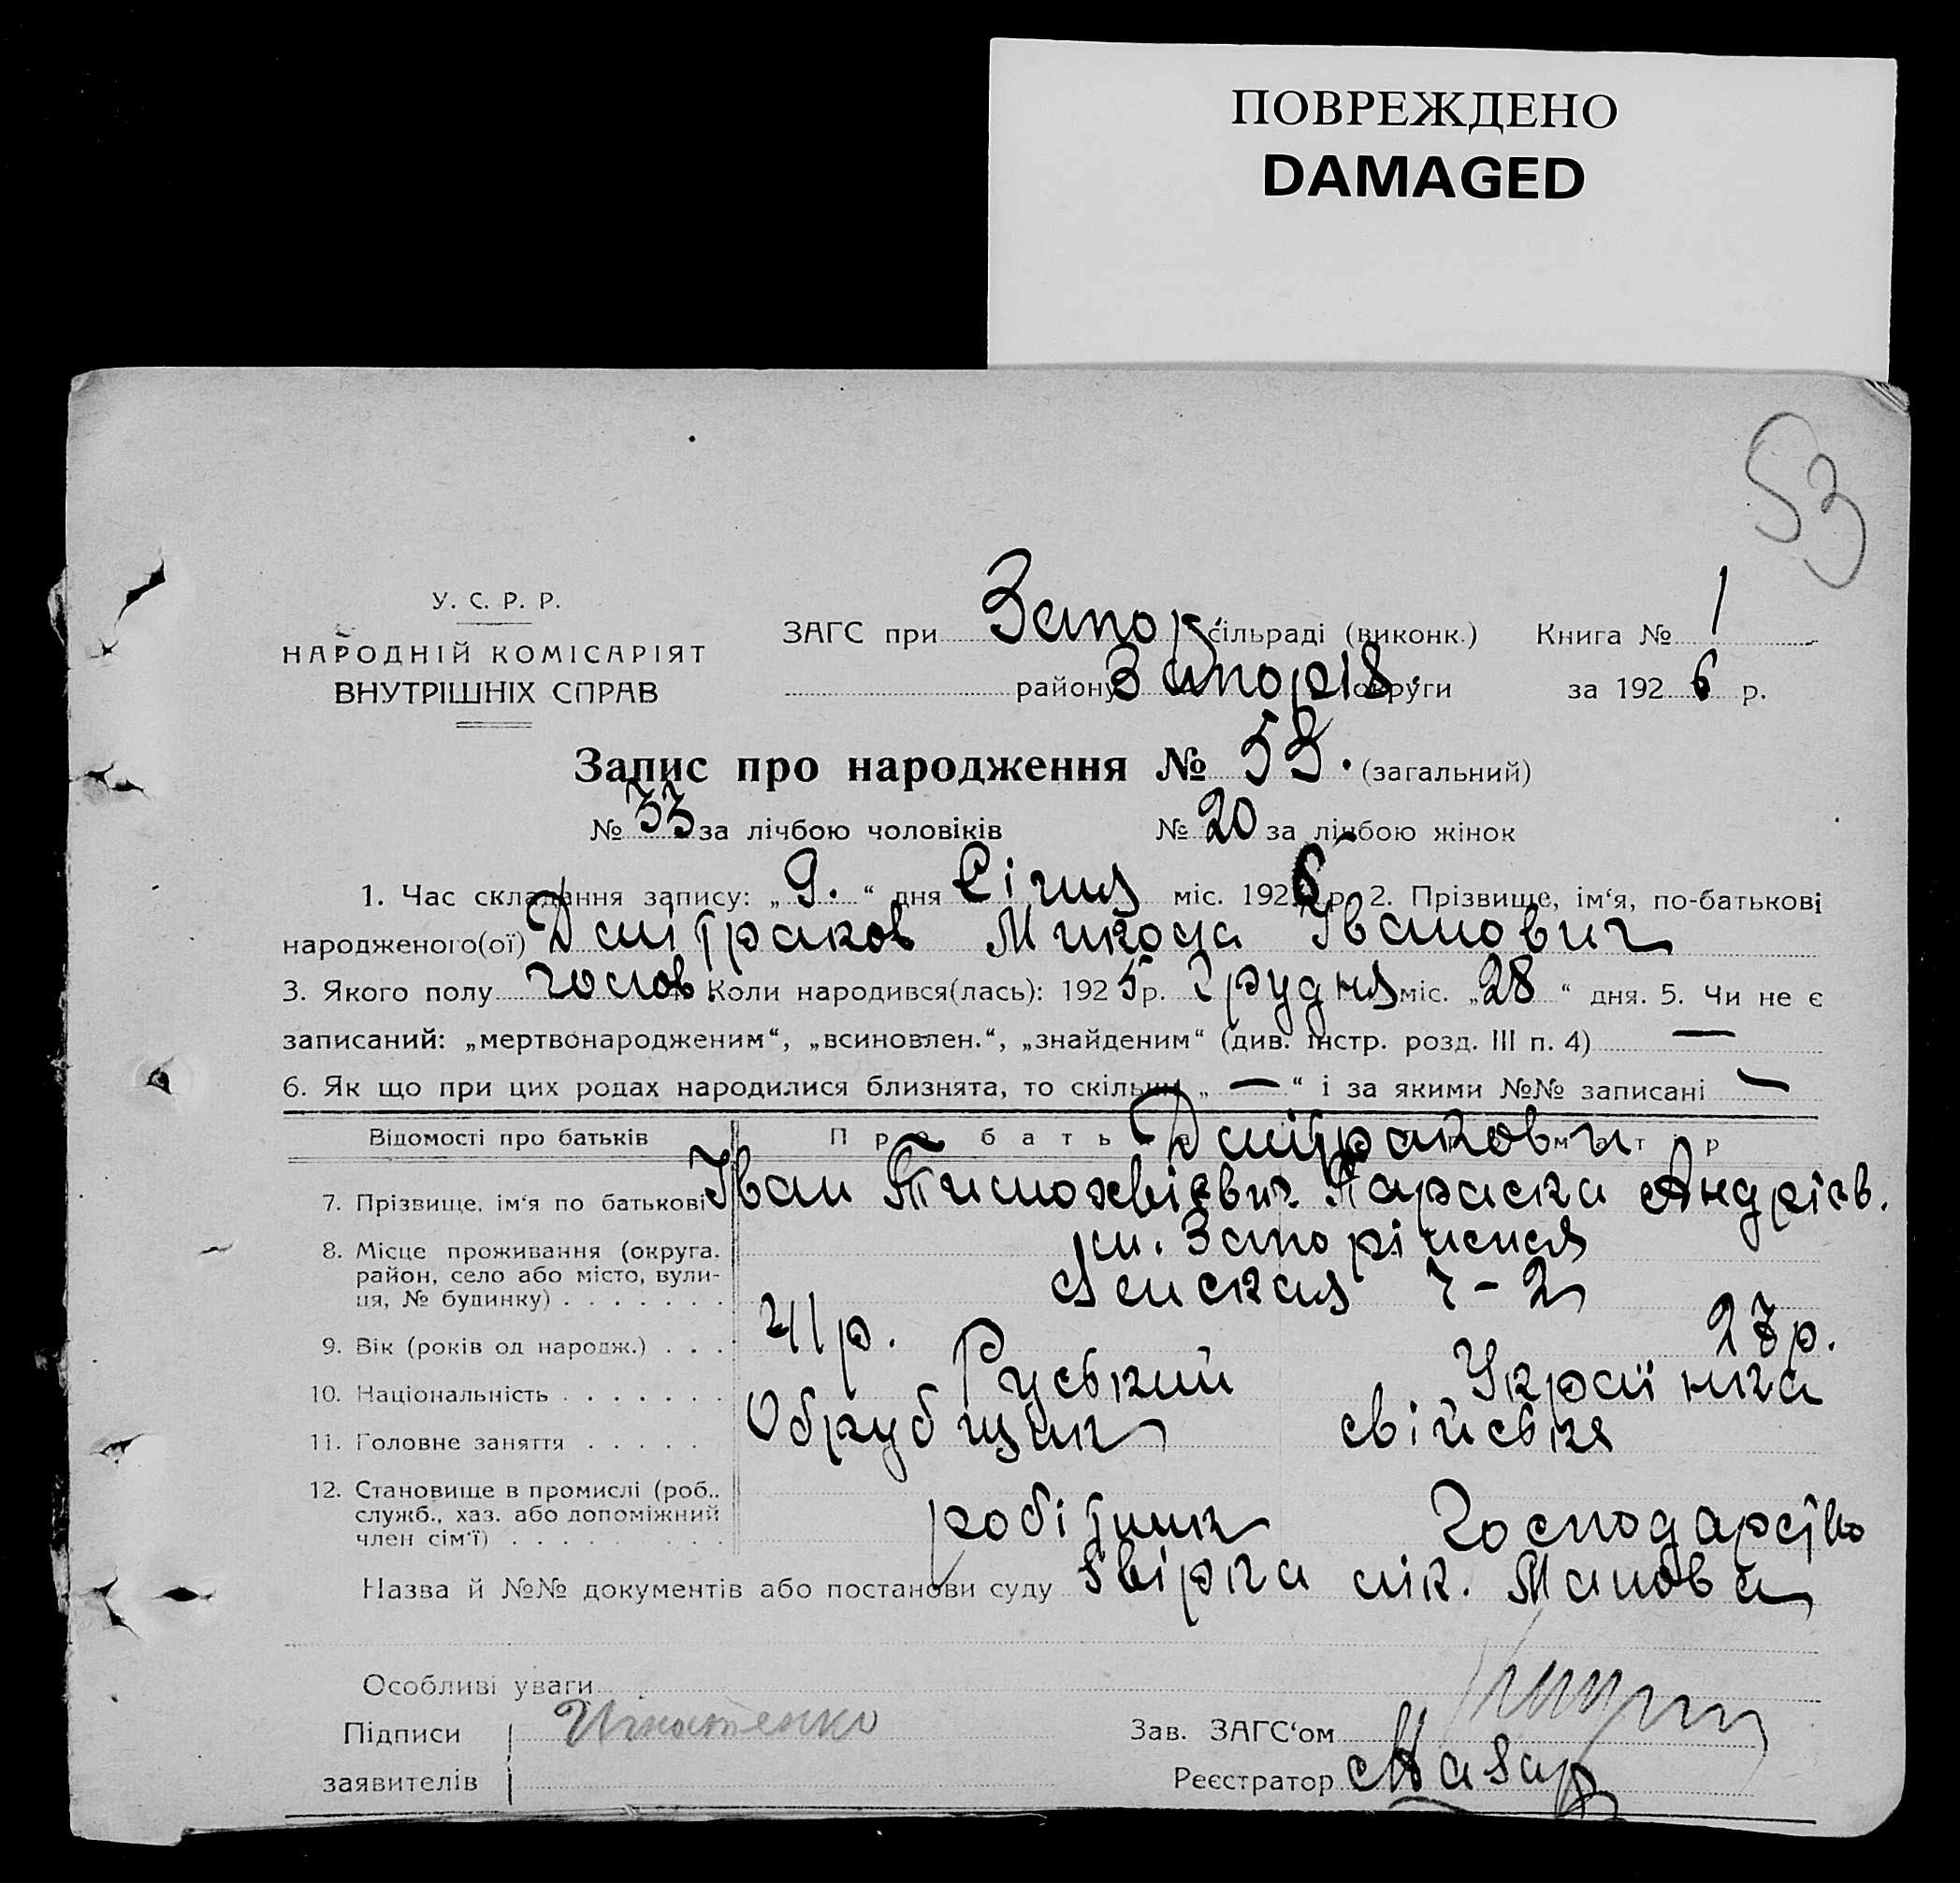 ПОВРЕЖДЕНО
DAMAGED
53
У. С. Р. Р.
НАРОДНІЙ КОМІСАРІЯТ
ВНУТРІШНІХ СПРАВ
ЗАГС при Запор. сільраді (виконк.) Книга № 1
району Запоріз. округи за 1926 р.
Запис про народження № 53. (загальний)
№ 33 за лічбою чоловіків № 20 за лічбою жінок
1. Час складання запису: „ 9. “ дня Січня міс. 1926 р. 2. Прізвище, ім‘я, по-батькові
народженого(ої) Дмітраков Микола Іванович
3. Якого полу чолов. Коли народився(лась): 1925 р. Грудня міс. „ 28 “ дня. 5. Чи не є
записаний: „мертвонародженим“, „всиновлен.“, „знайденим“ (див. інстр. розд. III п. 4) —
6. Як що при цих родах народилися близнята, то скільки „ — “ і за якими №№ записані —
Відомості про батьків Про бать Дмітракови матір
7. Прізвище, ім‘я по батькові Іван Тимохвієвич Параска Андрієв.
8. Місце проживання (округа. м. Запоріжжя
район, село або місто, вули-
ця, № будинку) . . . . . . . 7-2
9. Вік (років од народж.) . . . 41 р. 27 р.
10. Національність . . . . . . . Руський Українка
11. Головне заняття . . . . . Обрубщик свійське
12. Становище в промислі (роб..
служб., хаз. або допоміжний робітник Господарство
член сім‘ї) . . . . . . . . .
Назва й №№ документів або постанови суду звірка лік. Манова
Особливі уваги
Підписи Игнатенко Зав. ЗАГС‘ом
заявителів Реєстратор Назар